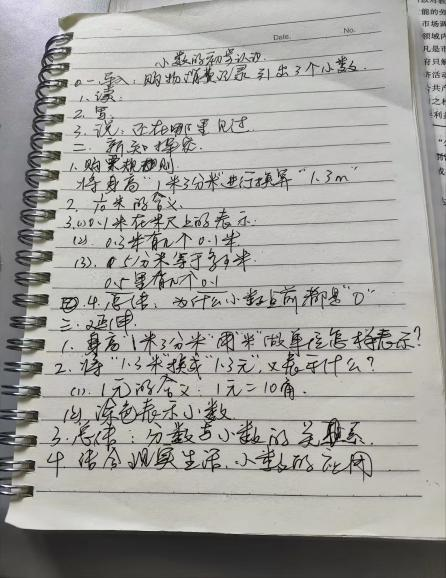 Date.
No.
小数的初步认识
一、导入：购物消费记录引出3个小数
1.读：
2.写：
3.说：还在哪里见过
二、新知探究
1.购票规则
将身高"1米3分米"进行换算"1.3m"
2. 米的含义
3.(1)0.1米在米尺上的表示
(2). 0.3米有几个0.1米
(3). 0.5 分米等于多少米
0.5里有几个0.1
4.总结：为什么小数点前都是"0"
三、延伸
1.身高"1米3分米"用"米"做单位怎样表示?
2.将"1.3米"换成"1.3元",又表示什么?
(1).1元的含义.1元=10角.
(2)涂色表示小数
3.总结：分数与小数的关系.
4.结合现实生活，小数的应用